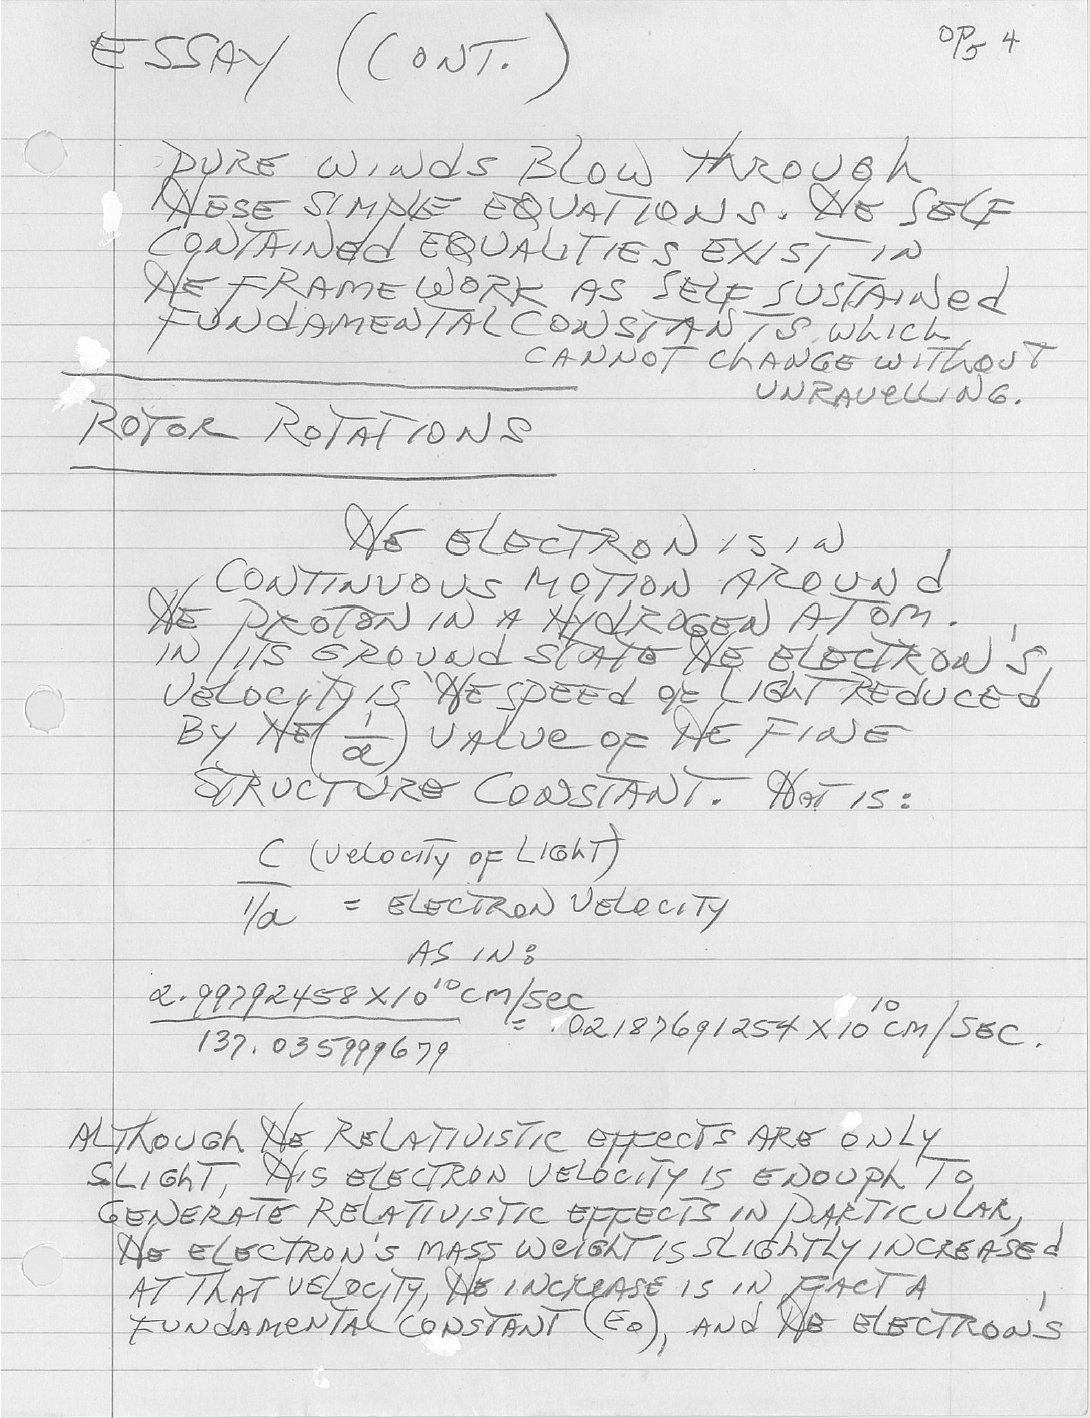 ESSAY (CONT.)
4
PURE WINDS BLOW THROUGH
THESE SIMPLE EQUATIONS. THE SELF
CONTAINED EQUALITIES EXIST IN
THE FRAMEWORK AS SELF SUSTAINED
FUNDAMENTAL CONSTANTS WHICH
CANNOT CHANGE WITHOUT
UNRAVELLING.
ROTOR ROTATIONS
THE ELECTRON IS IN
CONTINUOUS MOTION AROUND
THE PROTON IN A HYDROGEN ATOM.
IN ITS GROUND STATE THE ELECTRON'S
VELOCITY IS THE SPEED OF LIGHT REDUCED
BY THE (1/α) VALUE OF THE FINE
STRUCTURE CONSTANT. THAT IS:
C (VELOCITY OF LIGHT)
1/α = ELECTRON VELOCITY
AS IN:
2.99792458 X 10^10 CM/SEC
137.035999679 = .02187691254 X 10^10 CM/SEC.
ALTHOUGH THE RELATIVISTIC EFFECTS ARE ONLY
SLIGHT, THIS ELECTRON VELOCITY IS ENOUGH TO
GENERATE RELATIVISTIC EFFECTS IN PARTICULAR,
THE ELECTRON'S MASS WEIGHT IS SLIGHTLY INCREASED
AT THAT VELOCITY, THE INCREASE IS IN FACT A
FUNDAMENTAL CONSTANT (E0), AND THE ELECTRON'S